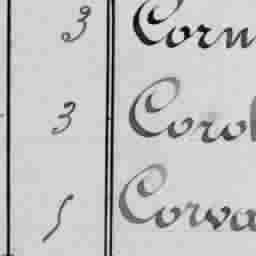 3 Corn
3 Coro
1 Corva